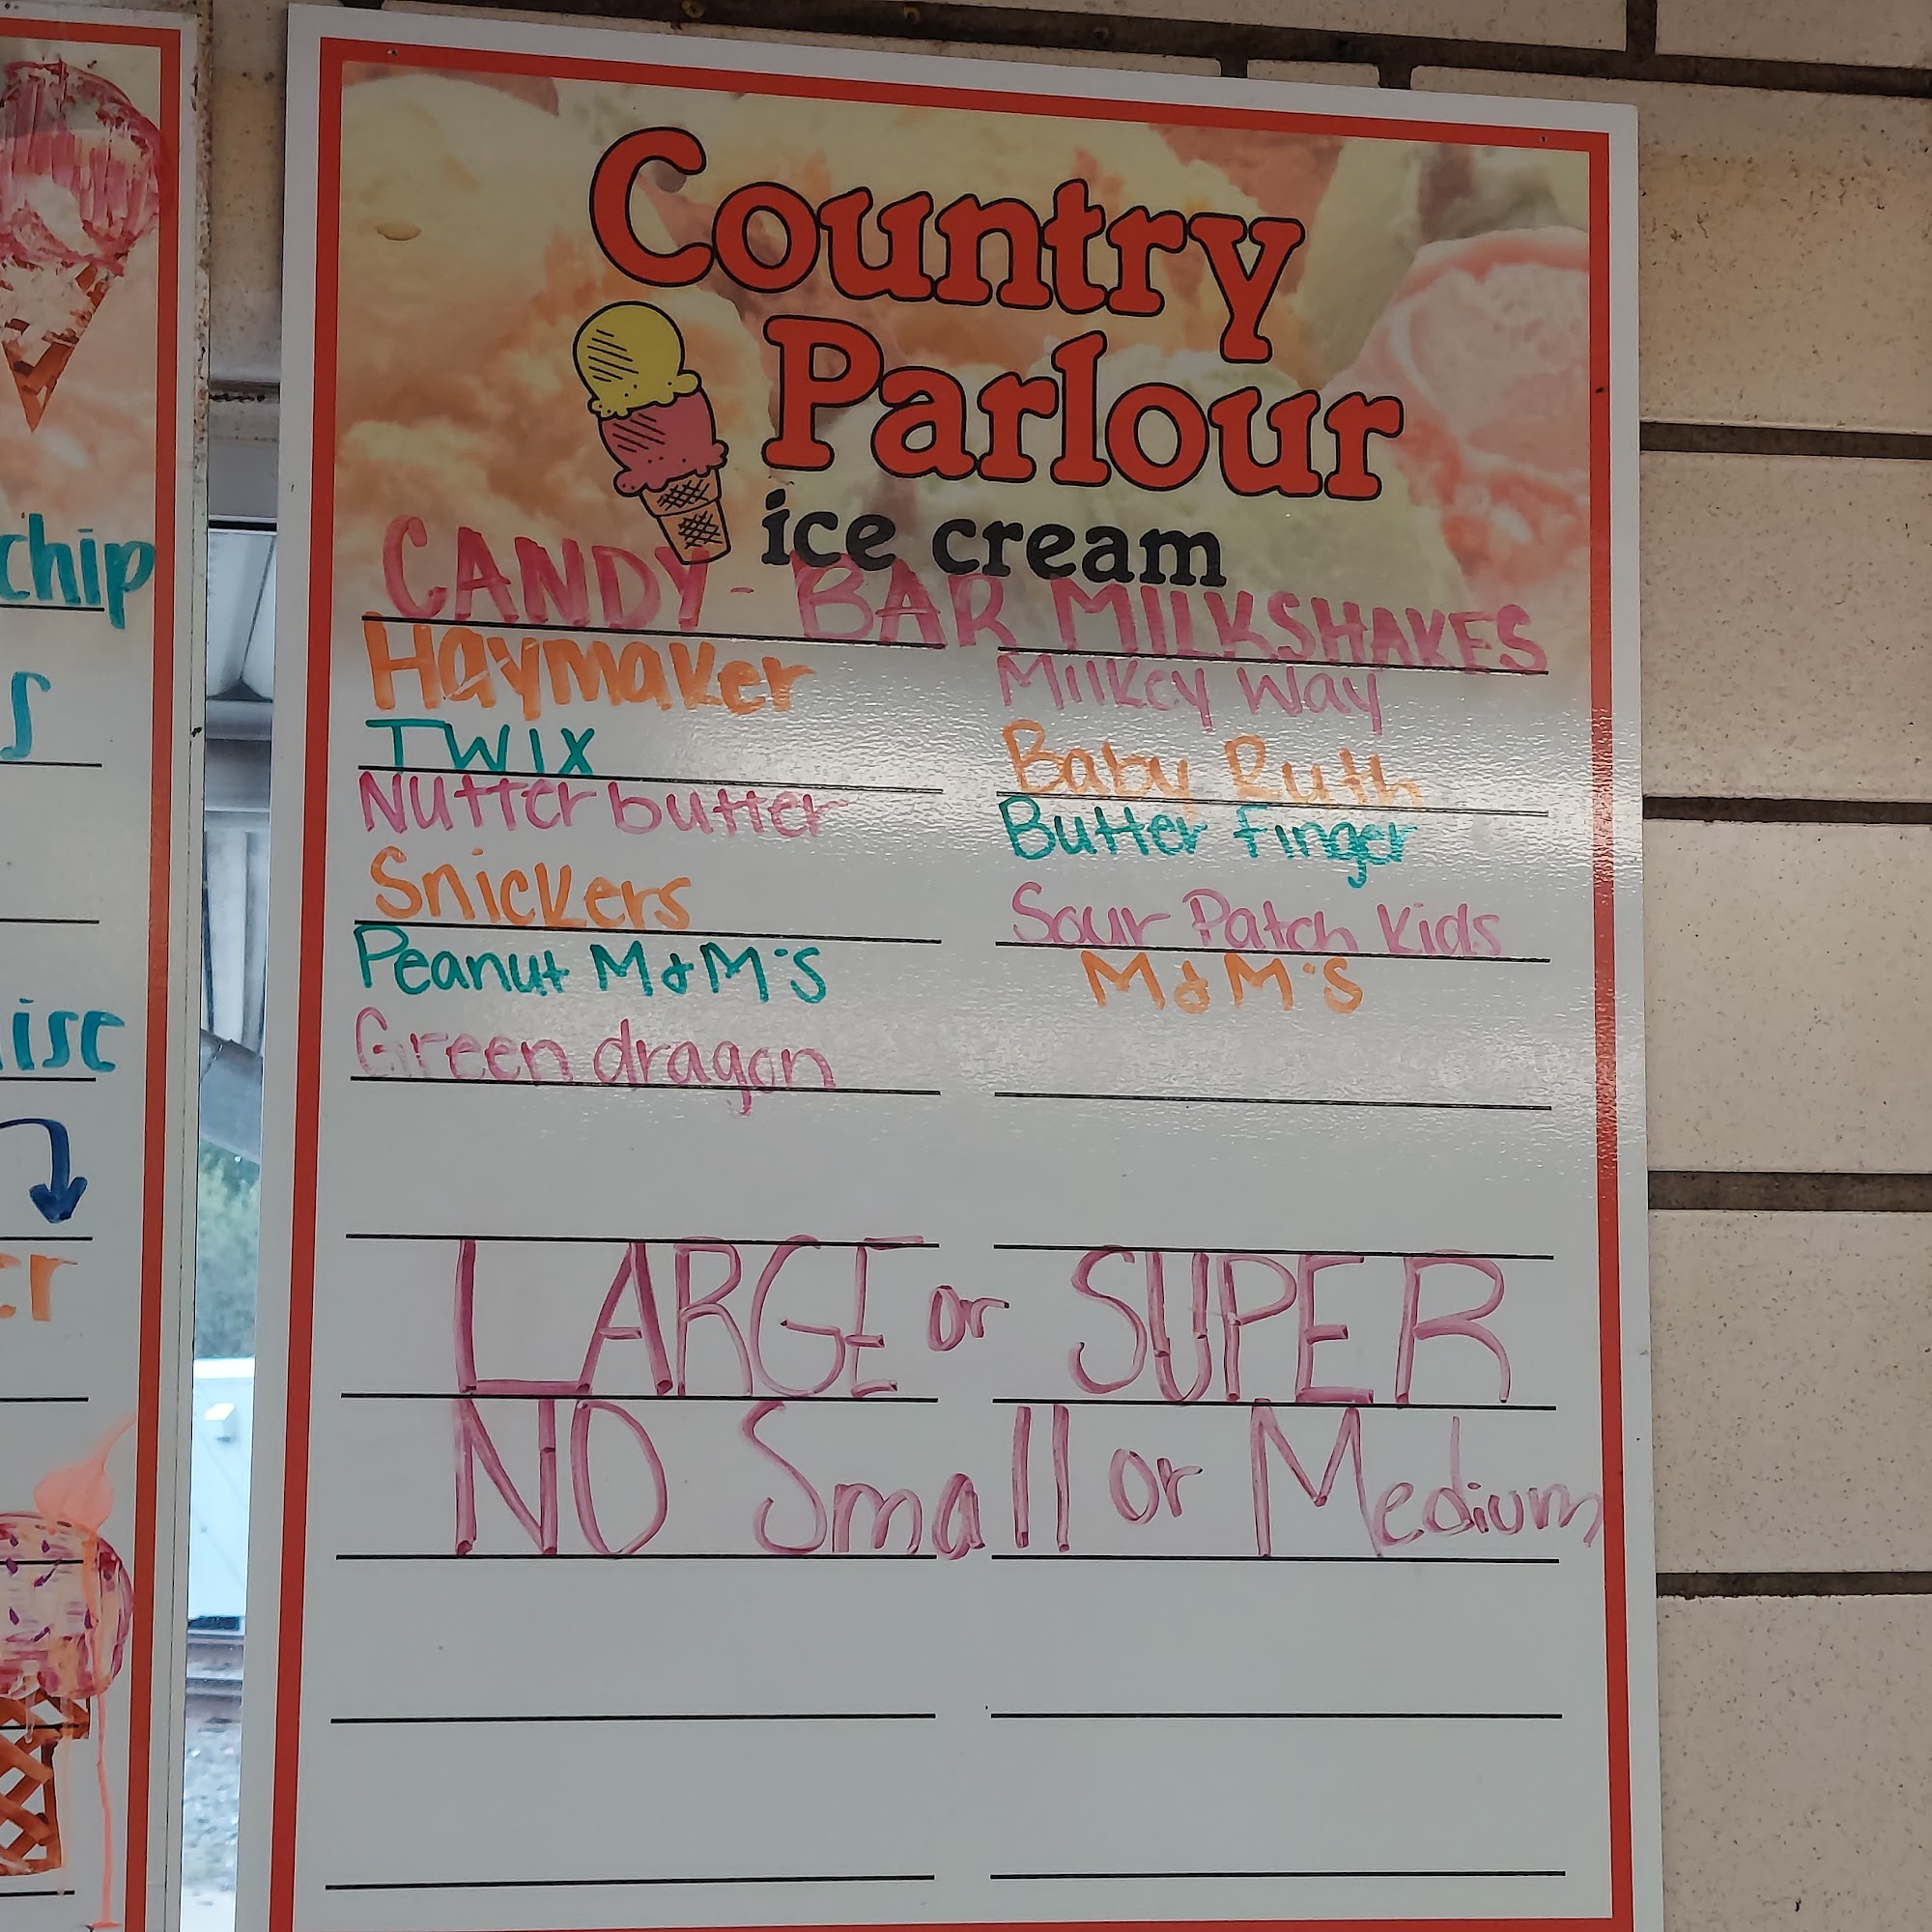 Country
Parlour
ice cream
CANDY - BAR MILKSHAKES
Haymaker
TWIX
Nutter butter
Snickers
Peanut M&M's
Green dragon
Milkey Way
Baby Ruth
Butter Finger
Sour Patch Kids
M&M's
LARGE or SUPER
NO Small or Medium
chip